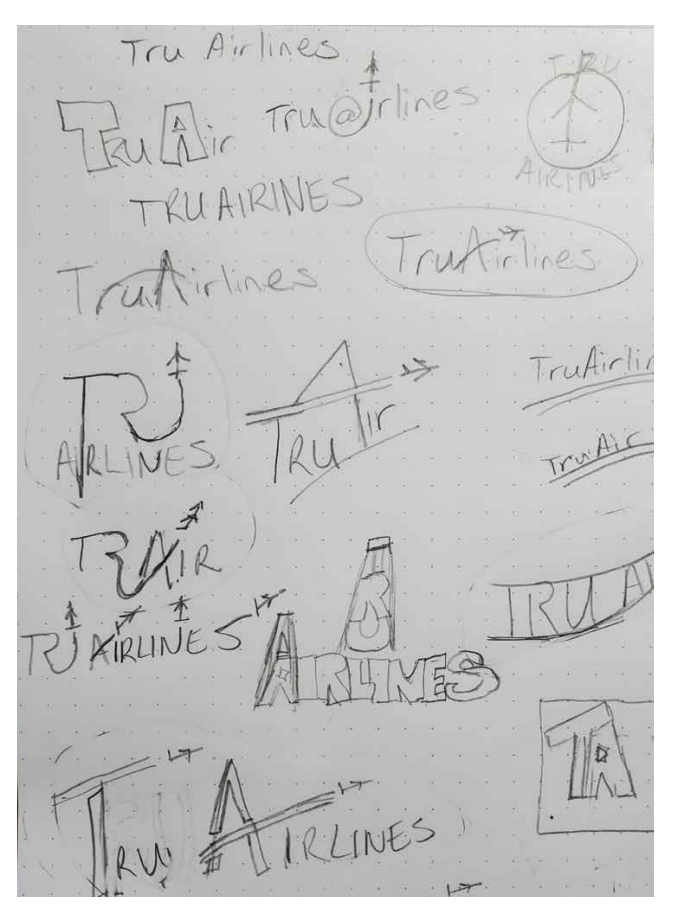 Tru Airlines
TruAir
Tru@irlines
TRU
AIRLINES
TRUAIRINES
TruAirlines
TruAirlines
TRU
AIRLINES
TRU Air
TruAirlin
TruAir
TRUAIR
TRU AIRLINES
TRU
AIRLINES
TRU AI
TA
TRU AIRLINES